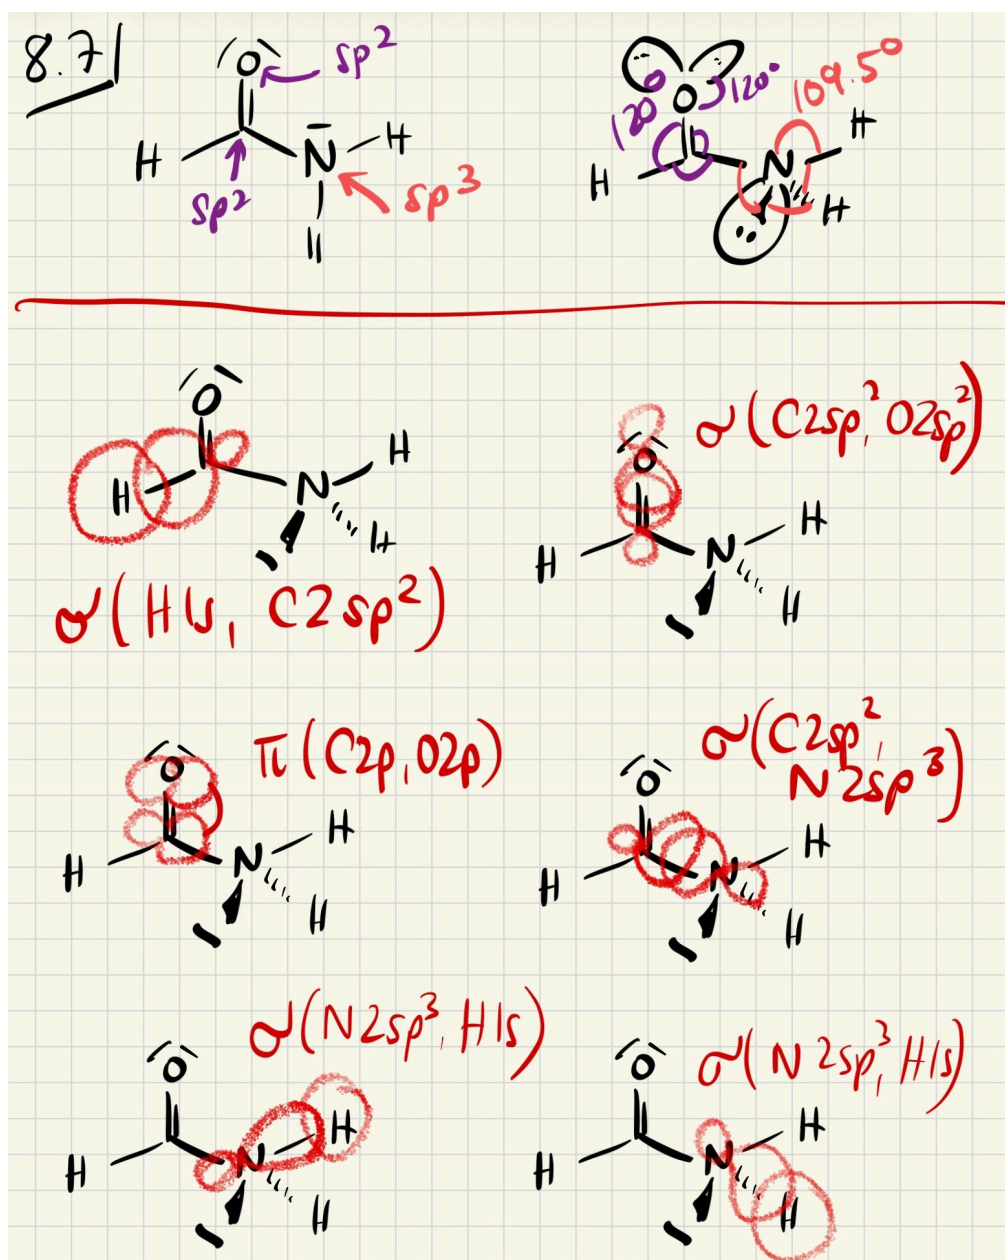 8.7
O sp2
H N H
sp2 sp3
H
120° O 120° 109.5°
H N H
H
O
H N H
H
σ(H1s, C2sp²)
σ(C2sp², O2sp²)
O
H N H
H
π(C2p, O2p)
O
H N H
H
σ(C2sp²,
N2sp³)
O
H N H
H
σ(N2sp³, H1s)
O
H N H
H
σ(N2sp³, H1s)
O
H N H
H